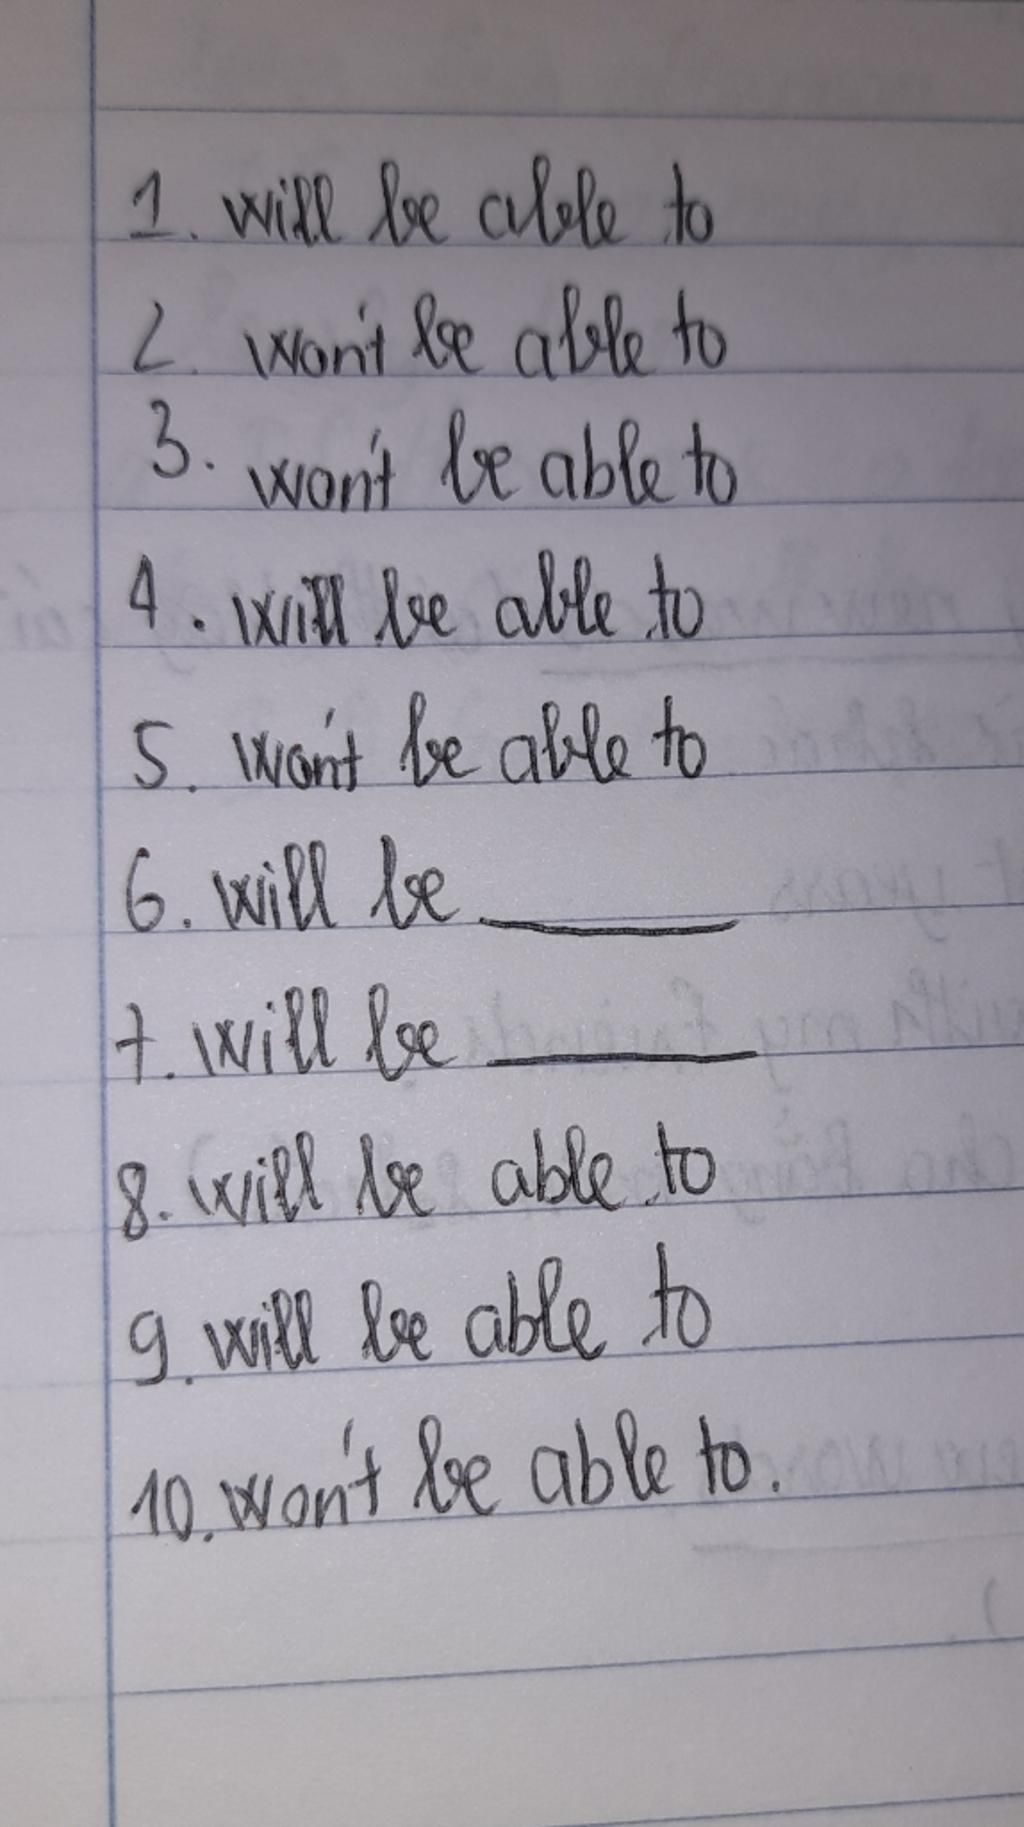 1. will be able to
2. won't be able to
3. won't be able to
4. will be able to
5. won't be able to
6. will be ______
7. will be ______
8. will be able to
9. will be able to
10. won't be able to.